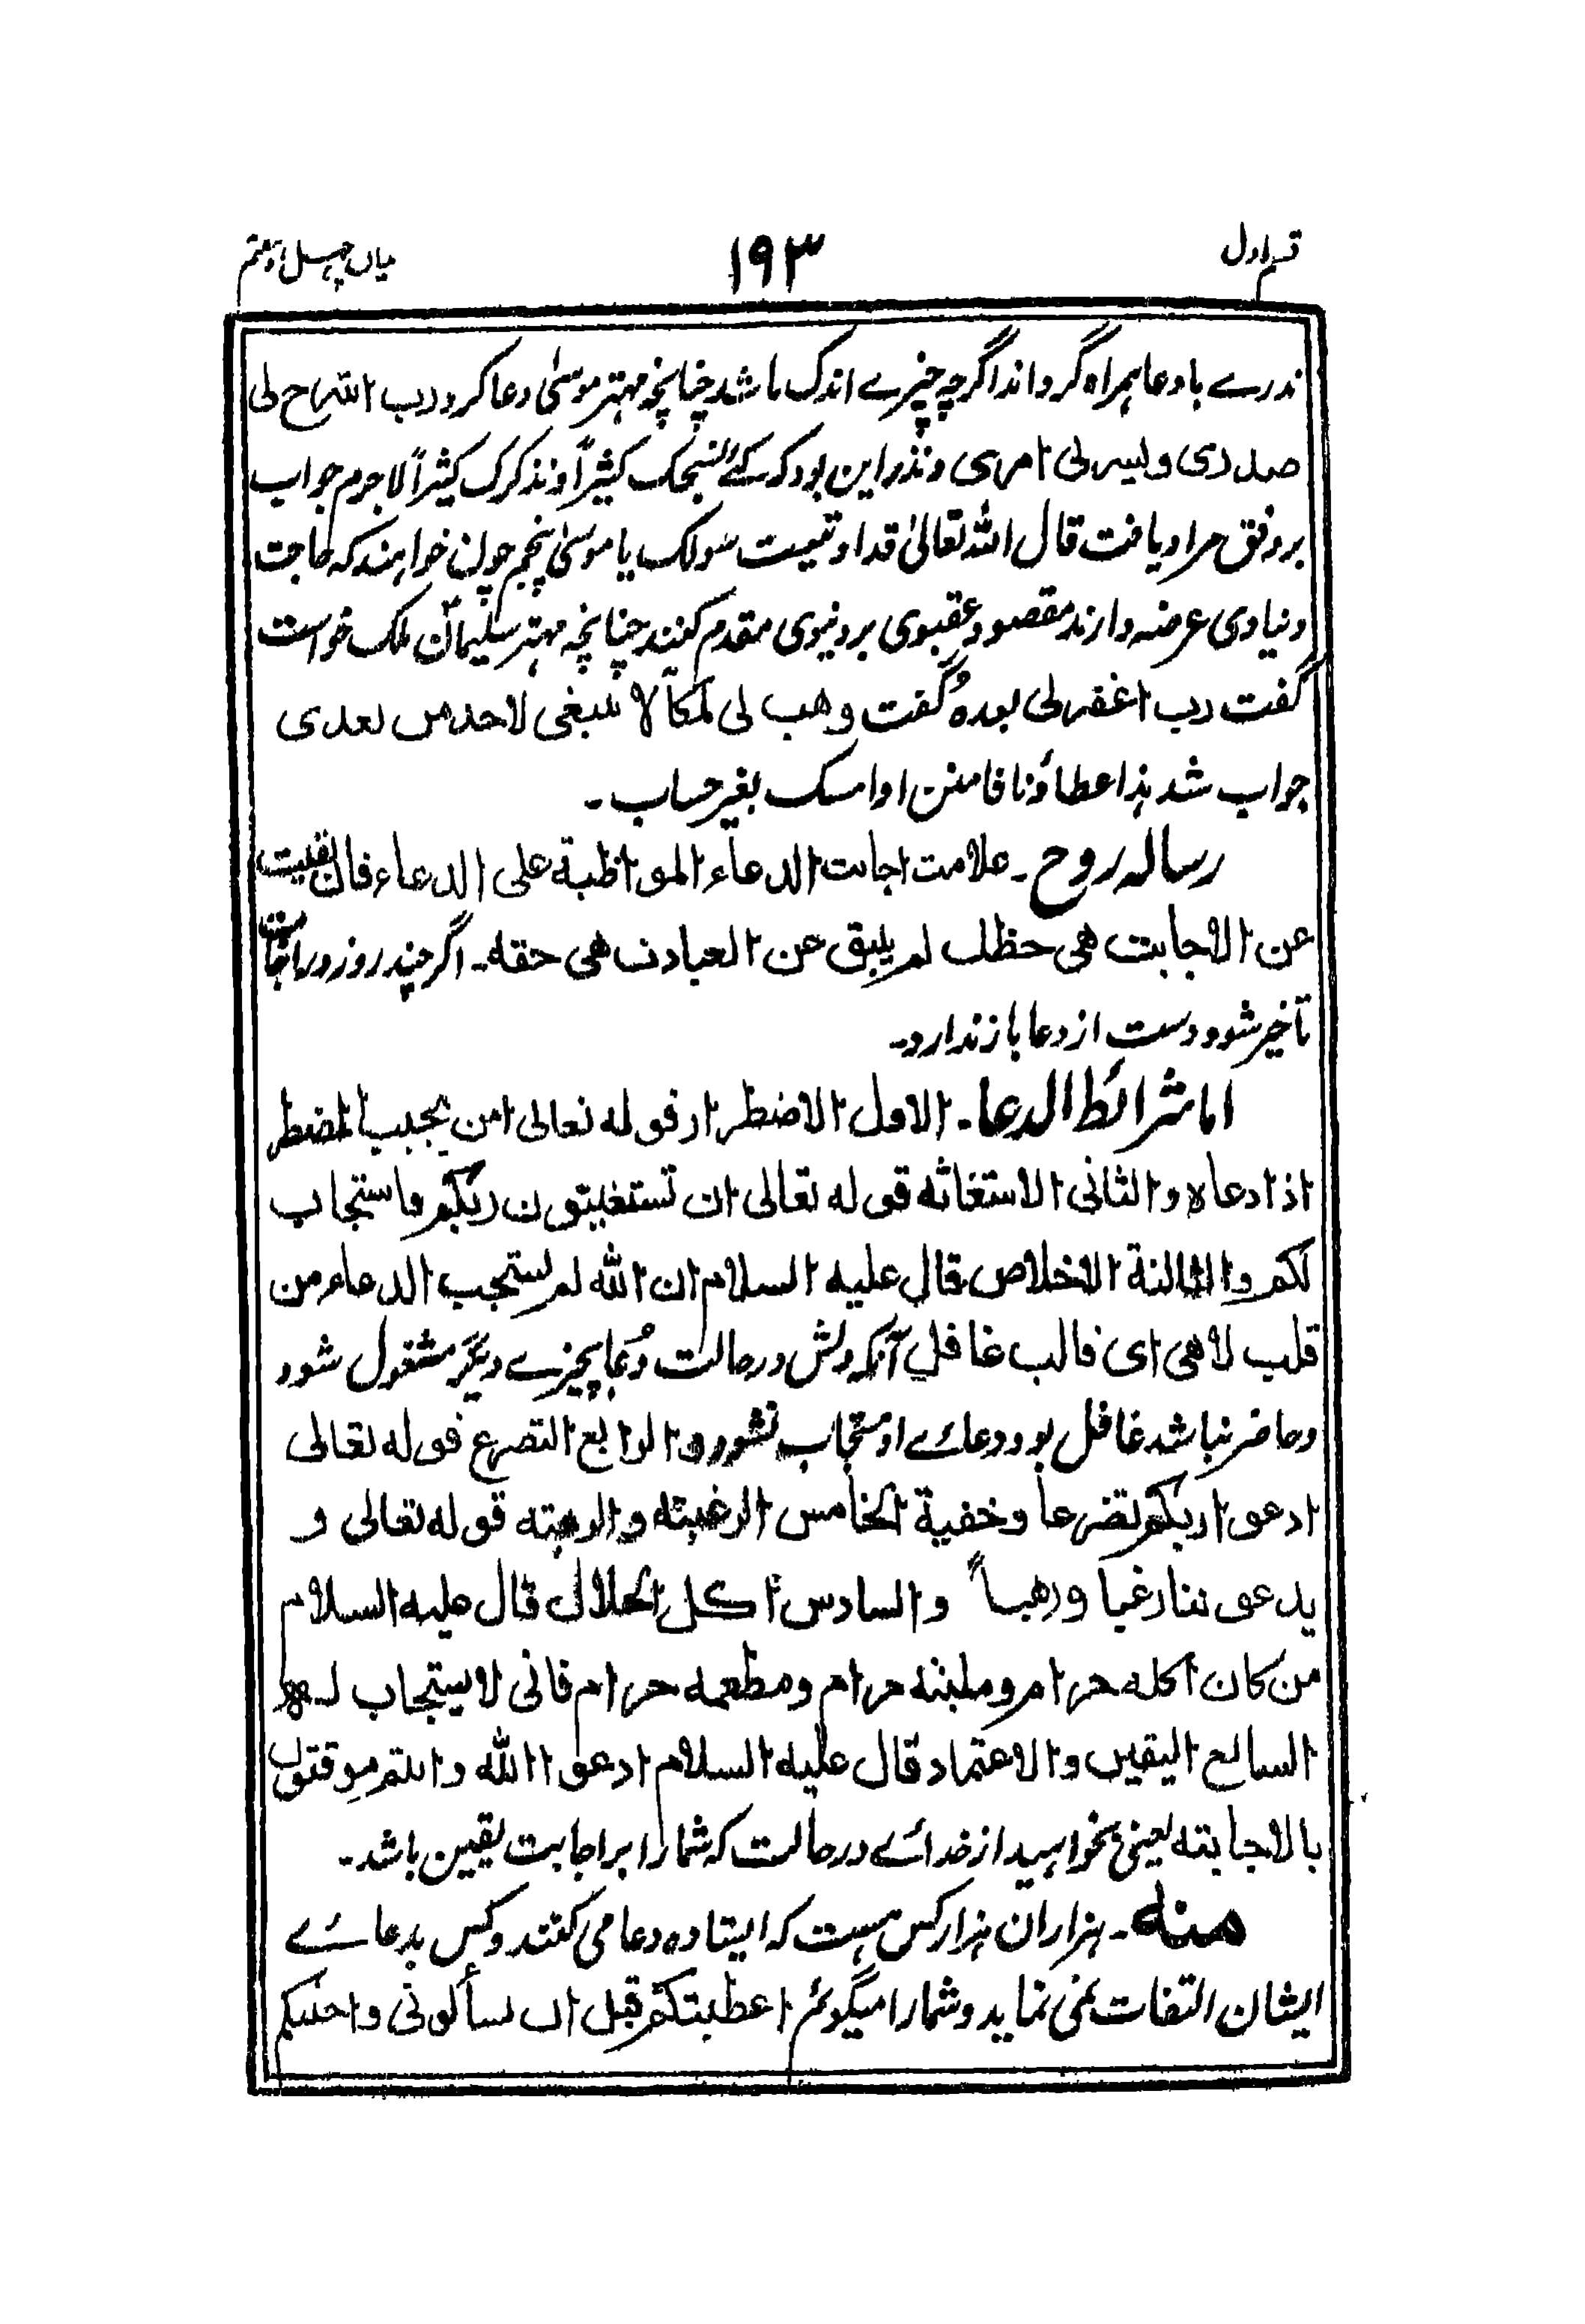 قسم اول ۱۹۳ میاں چہل و هفتم
ندرے با دعا ہمراه گرداند اگرچہ چیزے اندک باشد چنانچہ مہتر موسیٰ دعا کرد رب اشرح لی
صدری ویسر لی امری ونذر این بود کہ کے نسبحک کثیراً ونذکرک کثیراً لاجرم جواب
بروفق مراد یافت قال اللّٰہ تعالیٰ قد اوتیت سولک یا موسیٰ پنجم چون خواہند کہ حاجت
دنیاوی عرضہ دارند مقصود عقبوی بر دنیوی مقدم کنند چنانچہ مہتر سلیمانؑ ملک خواست
گفت رب اغفر لی بعدہ گفت وهب لی ملکاً لا ینبغی لاحد من بعدی
جواب شد ہذا عطاؤنا فامنن او امسک بغیر حساب۔
رسالہ روح۔ علامت اجابت الدعاء المواظبة علی الدعاء فان بقیت
عن الاجابت هی حظک لم یبق عن العبادت هی حقه۔ اگر چند روز در اجابت
تاخیر شود دست از دعا باز ندارد۔
اما شرائط الدعا۔ الاول الاضطرار قوله تعالی امن یجیب المضطر
اذا دعاه والثانی الاستغاثه قوله تعالی ان تستغیثون ربکم فاستجاب
لکم والثالثة الاخلاص قال علیه السلام ان الله لم یستجب الدعاء من
قلب لاهی ای قالب غافل آنکہ دلش در حالت دُعا بچیزے دیگر مشغول شود
وحاضر نباشد غافل بود و دعائے او مستجاب نشود والرابع التضرع قوله تعالی
ادعوا ربکم تضرعا وخفیة الخامس الرغبته والرهبته قوله تعالی و
یدعوننا رغبا ورهباً والسادس اکل الحلال قال علیه السلام
من کان اکله حرام وملبنه حرام ومطعمه حرام فانی لا یستجاب له
السابع الیقین والاعتماد قال علیه السلام ادعوا الله وانتم موقنون
بالاجابته یعنی بخواہید از خدائے در حالت کہ شمارا بر اجابت یقین باشد۔
منه۔ ہزاران ہزار کس ہست کہ ایستاده دعا می کنند وکس بدعائے
ایشان التفات نمی نماید وشمارا میگویم اعطیتکم قبل ان تسألونی واجبتکم